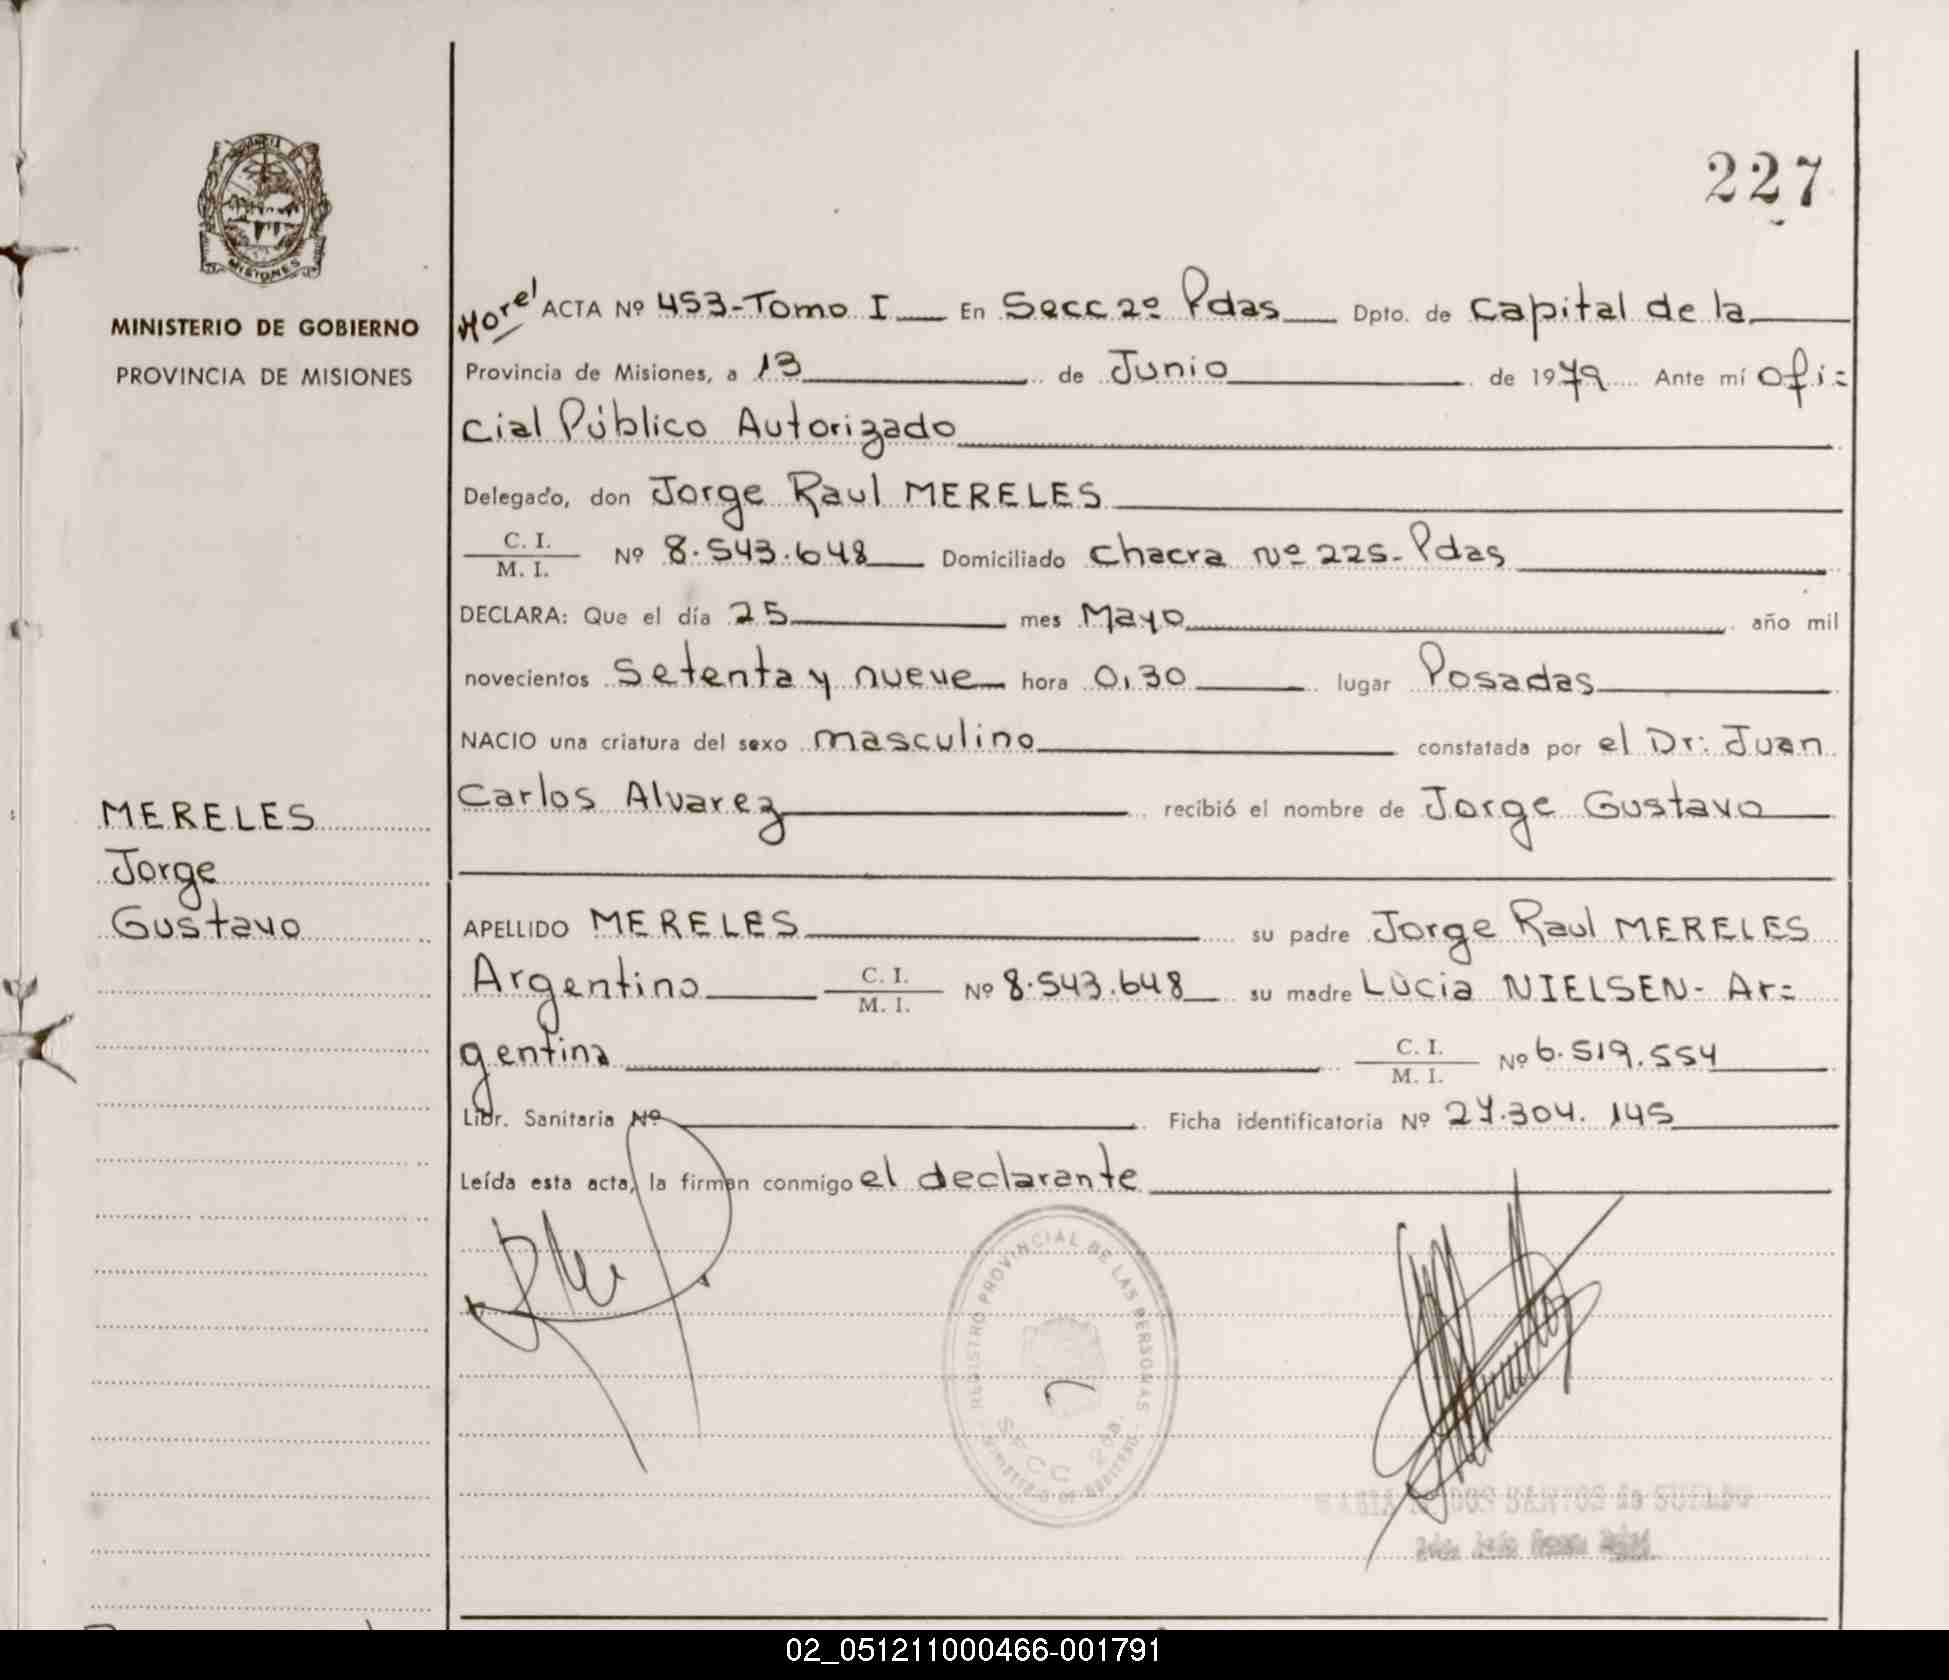 227
MISIONES
MINISTERIO DE GOBIERNO
PROVINCIA DE MISIONES
MERELES
Jorge
Gustavo
Morel ACTA Nº 453-Tomo I En Secc 2º Pdas Dpto. de Capital de la
Provincia de Misiones, a 13 de Junio de 1979 Ante mí Ofi=
cial Público Autorizado
Delegado, don Jorge Raul MERELES
C. I.
M. I. Nº 8.543.648 Domiciliado Chacra Nº 225-Pdas
DECLARA: Que el día 25 mes Mayo año mil
novecientos setenta y nueve hora 0,30 lugar Posadas
NACIO una criatura del sexo masculino constatada por el Dr: Juan
Carlos Alvarez recibió el nombre de Jorge Gustavo
APELLIDO MERELES su padre Jorge Raul MERELES
Argentino C. I.
M. I. Nº 8.543.648 su madre Lùcia NIELSEN- Ar=
gentina C. I.
M. I. Nº 6.519.554
Libr. Sanitaria Nº Ficha identificatoria Nº 27.304.145
Leída esta acta, la firman conmigo el declarante
REGISTRO PROVINCIAL DE LAS PERSONAS
SECC 2da.
02_051211000466-001791